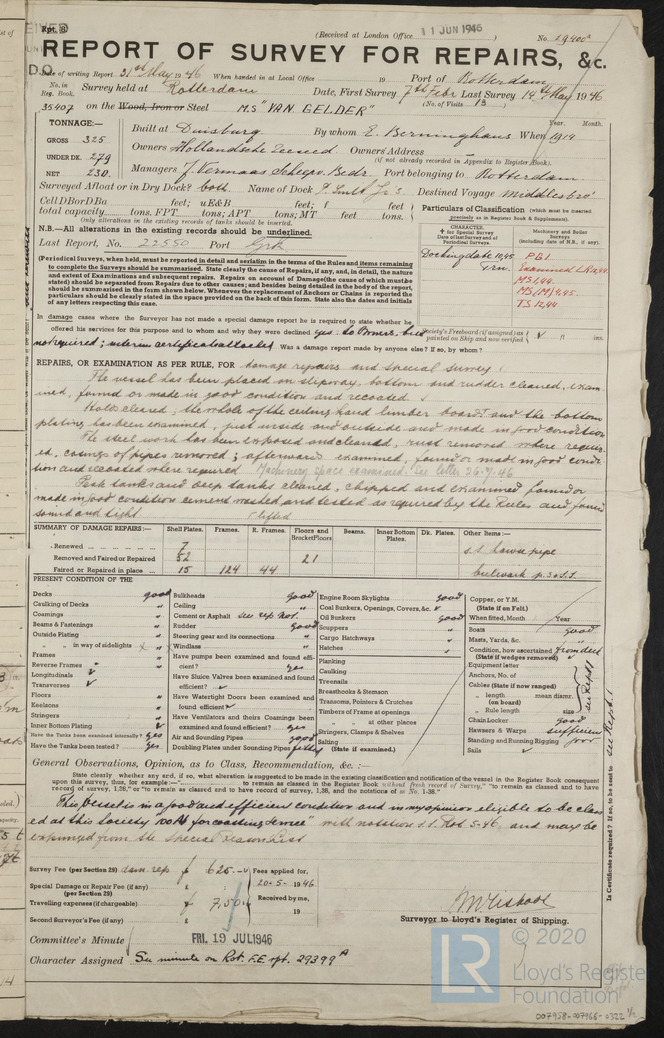 Rpt. 8.
(Received at London Office 11 JUN 1946 )
No. 29400A
REPORT OF SURVEY FOR REPAIRS, &c.
Date of writing Report 31st May 1946 When handed in at Local Office 19 Port of Rotterdam
No. in Reg. Book. Survey held at Rotterdam Date, First Survey 7th Febr Last Survey 14th May 1946
(No. of Visits 13 )
35407 on the Wood, Iron or Steel M.S "VAN GELDER"
TONNAGE:—
GROSS 325
UNDER DK. 279
NET 230.
Built at Duisburg By whom E. Berninghaus When 1914
Year. Month.
Owners Hollandsche Owners' Address —
(if not already recorded in Appendix to Register Book).
Managers J. Vermaas Scheepv. Bedr. Port belonging to Rotterdam
Surveyed Afloat or in Dry Dock? both. Name of Dock P. Smit Jr's Destined Voyage Middlesbro'
Cell DBor DBa feet; uE&B feet; f feet
total capacity tons. FPT tons; APT tons; MT feet tons.
Only alterations in the existing records of tanks should be inserted.
N.B.—All alterations in the existing records should be underlined.
Last Report, No. 22550 Port Grk
Particulars of Classification (which must be inserted precisely as in Register Book & Supplements).
CHARACTER. ✠ for Special Survey Date of last Survey and of Periodical Surveys.
Machinery and Boiler Surveys (including date of N.B., if any).
Docking date 10,45
(Periodical Surveys, when held, must be reported in detail and seriatim in the terms of the Rules and items remaining
to complete the Surveys should be summarised. State clearly the cause of Repairs, if any, and, in detail, the nature
and extent of Examination and subsequent repairs. Repairs on account of Damage (the cause of which must be
stated) should be separated from Repairs due to other causes; and besides being detailed in the body of the report,
should be summarised in the form shown below. Whenever the replacement of Anchors or Chains is reported the
particulars should be clearly stated in the space provided on the back of this form. State also the dates and initials
of any letters respecting this case.)
In damage cases where the Surveyor has not made a special damage report he is required to state whether he
offered his services for this purpose and to whom and why they were declined yes: to Owners, but
not required; interim certificate attached Was a damage report made by anyone else? If so, by whom?
Society's Freeboard (if assigned) as painted on Ship and now verified
REPAIRS, OR EXAMINATION AS PER RULE, FOR damage repairs and special survey.
The vessel has been placed on slipway, bottom and rudder cleaned, exam
ined, found or made in good condition and recoated.
Hold cleared; the whole of the ceiling and limber boards and the bottom
plating has been examined, just inside and outside and made in good condition
The steel work has been exposed and cleaned, rust removed where requir
ed, casings of pipes removed; afterwards examined, found or made in good condi
tion and recoated where required Machinery space examined. See letter 26-7-46
Peak tanks and deep tanks cleaned, chipped and examined found or
made in good condition cement washed and tested as required by the Rules and found
sound and tight
SUMMARY OF DAMAGE REPAIRS:— Shell Plates. Frames. R. Frames. Floors and BracketFloors Beams. Inner Bottom Plates. Dk. Plates. Other Items:—
Renewed 7
Removed and Faired or Repaired 52 21
Faired or Repaired in place 15 124 44
s.s. hawse pipe
bulwark p. & s.s.
PRESENT CONDITION OF THE
Decks good
Caulking of Decks
Coamings
Beams & Fastenings
Outside Plating
" " in way of sidelights
Frames
Reverse Frames
Longitudinals
Transverses
Floors
Keelsons
Stringers
Inner Bottom Plating
Have the Tanks been examined internally? yes
Have the Tanks been tested? yes
Bulkheads good
Ceiling
Cement or Asphalt see rep. hot.
Rudder good
Steering gear and its connections
Windlass
Have pumps been examined and found efficient? yes
Have Sluice Valves been examined and found efficient?
Have Watertight Doors been examined and found efficient
Have Ventilators and their Coamings been examined and found efficient? yes
Air and Sounding Pipes good
Doubling Plates under Sounding Pipes fitted
Engine Room Skylights good
Coal Bunkers, Openings, Covers, &c.
Oil Bunkers good
Scuppers
Cargo Hatchways
Hatches
Planking
Caulking
Treenails
Breasthooks & Stemson
Transoms, Pointers & Crutches
Timbers of Frame at openings
" " at other places
Stringers, Clamps & Shelves
Salting
(State if examined.)
Copper, or Y.M.
(State if on Felt.)
When fitted, Month Year
Boats good
Masts, Yards, &c.
Condition, how ascertained from deck
(State if wedges removed)
Equipment letter
Anchors, No. of
Cables (State if now ranged)
" length mean diamr.
(on board)
" Rule length size
see Rept 1
Chain Locker good
Hawsers & Warps sufficient
Standing and Running Rigging good
Sails
General Observations, Opinion, as to Class, Recommendation, &c. :—
State clearly whether any, and if so, what alteration is suggested to be made in the existing classification and notification of the vessel in the Register Book consequent
upon this survey, thus, for example:—
This Vessel is in a good and efficient condition and in my opinion eligible to be class
ed at this Society 100A1 "for coasting service" with notation s.s. Rot. 5-46, and may be
expunged from the Special Reason List
Survey Fee (per Section 29) dam. rep f 625.—
Special Damage or Repair Fee (if any) £
(per Section 29)
Travelling expenses (if chargeable). f 7,50
Second Surveyor's Fee (if any) £
Fees applied for,
20-5-1946
Received by me,
19
Surveyor to Lloyd's Register of Shipping.
Committee's Minute FRI. 19 JUL 1946
Character Assigned See minute on Rot. F.E. rpt. 29399A
Is Certificate required? If so, to be sent to see Rept. 1
© 2020
LR
Lloyd's Register
Foundation
007958-007966-0322 1/2